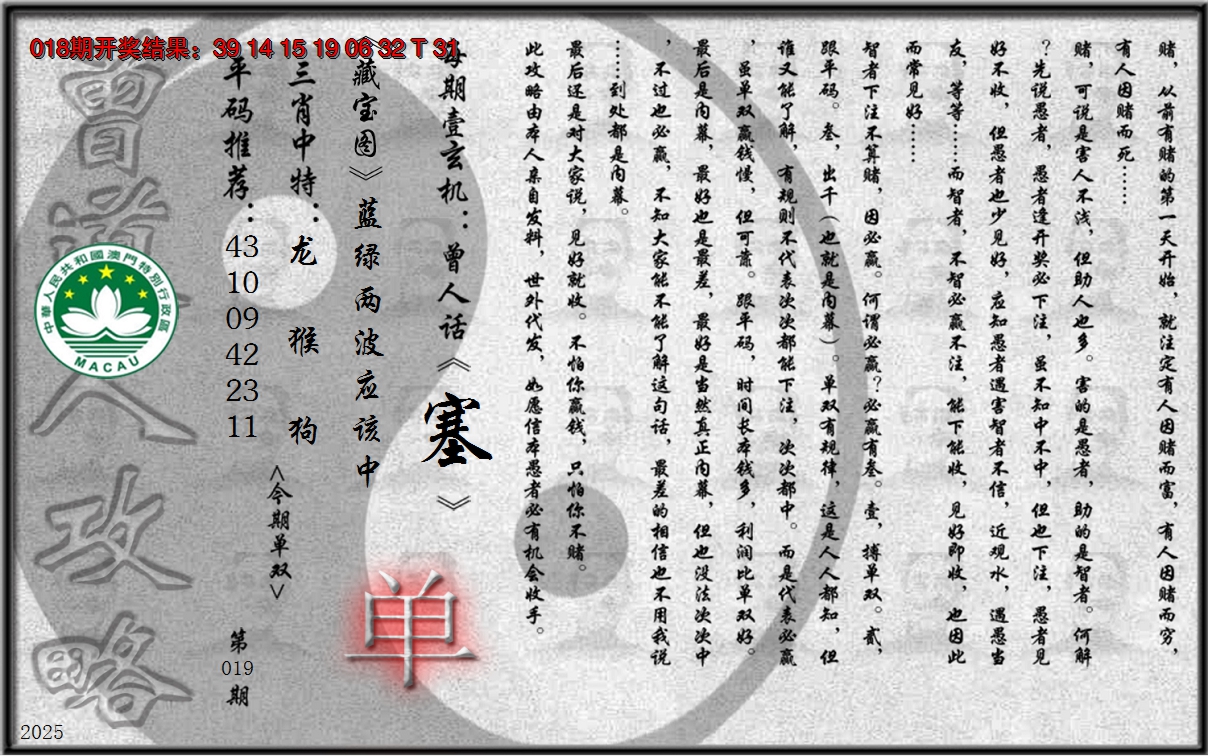 018期开奖结果：39 14 15 19 06 32 T 31
赌，从前有赌的第一天开始，就注定有人因赌而富，有人因赌而穷，
有人因赌而死……
赌，可说是害人不浅，但助人也多。害的是愚者，助的是智者。何解
？先说愚者，愚者逢开奖必下注，虽不知中不中，但也下注，愚者见
好不收，但愚者也少见好，应知愚者遇害智者不信，近观水，遇愚当
友，等等……而智者，不智必赢不注，能下能收，见好即收，也因此
而常见好……
智者下注不算赌，因必赢。何谓必赢？必赢有叁。壹，搏单双。贰，
跟平码。叁，出千（也就是内幕）。单双有规律，这是人人都知，但
谁又能了解，有规则不代表次次都能下注，次次都中。而是代表必赢
，虽单双赢钱慢，但可靠。跟平码，时间长本钱多，利润比单双好。
最后是内幕，最好也是最差，最好是当然真正内幕，但也没法次次中
，不过也必赢，不知大家能不能了解这句话，最差的相信也不用我说
……到处都是内幕。
最后还是对大家说，见好就收。不怕你赢钱，只怕你不赌。
此攻略由本人亲自发料，世外代发，如愿信本愚者必有机会收手。
每期壹玄机：曾人话《塞》
《藏宝图》蓝绿两波应该中
三肖中特：龙 猴 狗
平码推荐：43 10 09 42 23 11
<今期单双>
单
第019期
曾道人攻略
中華人民共和國澳門特別行政區
MACAU
2025